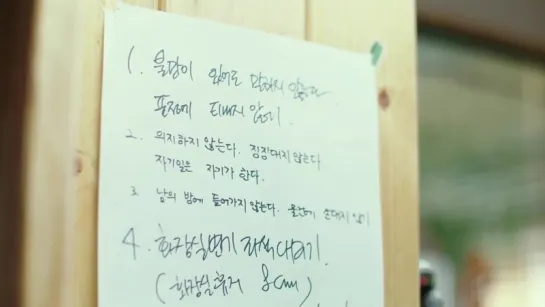 1. 불만이 있어도 말하지 않는다
표정에 티내지 않기
2. 의지하지 않는다. 징징대지 않는다
자기일은 자기가 한다.
3. 남의 방에 들어가지 않는다. 물건에 손대지 않기
4. 화장실변기 좌석내리기
(화장실휴지 8cm)